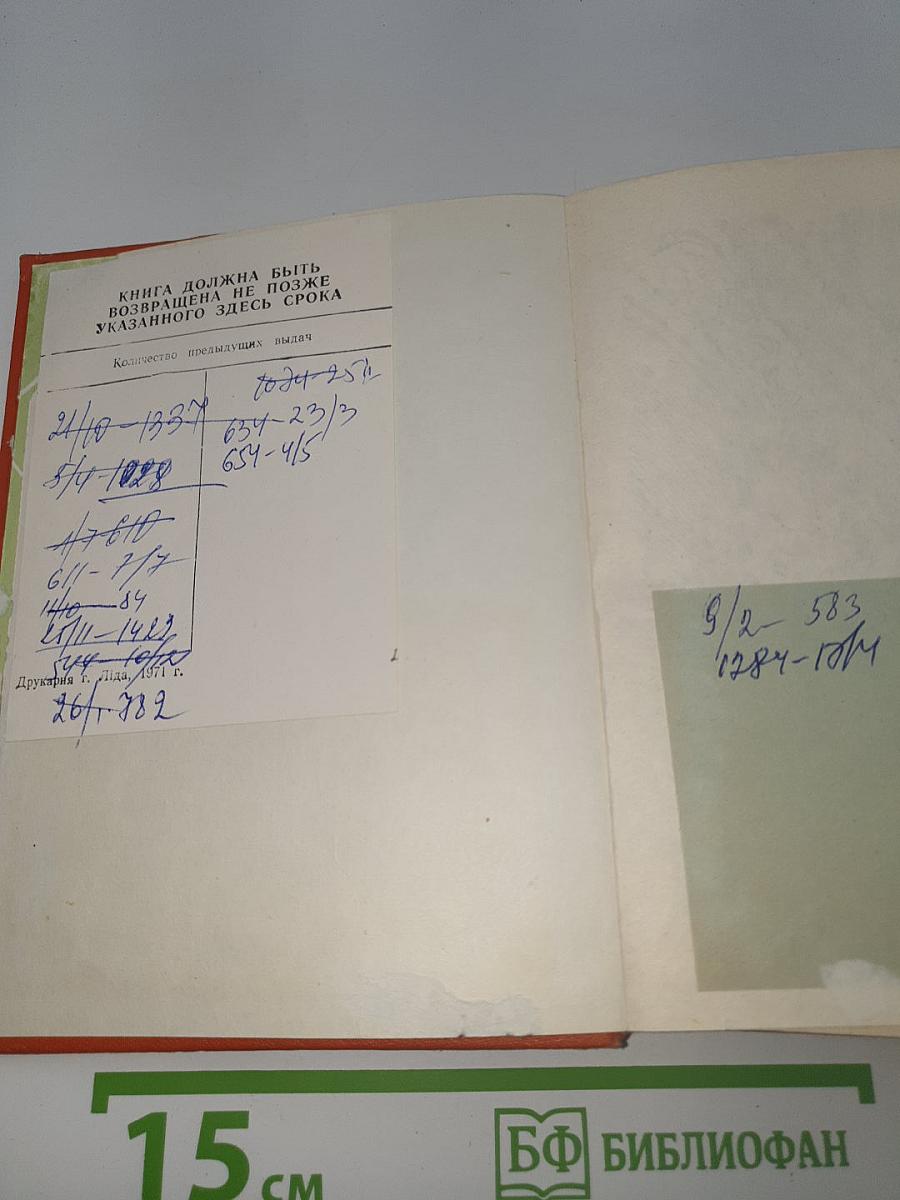 КНИГА ДОЛЖНА БЫТЬ
ВОЗВРАЩЕНА НЕ ПОЗЖЕ
УКАЗАННОГО ЗДЕСЬ СРОКА
Количество предыдущих выдач
21/10-1337
5/4-1028
1/7 610
611-7/7
11/10-84
25/11-1422
544-10/12
Друкарня г. Ліда, 1971 г.
782
634-23/3
654-4/5
9/2-583
1284-
15 см
БФ БИБЛИОФАН